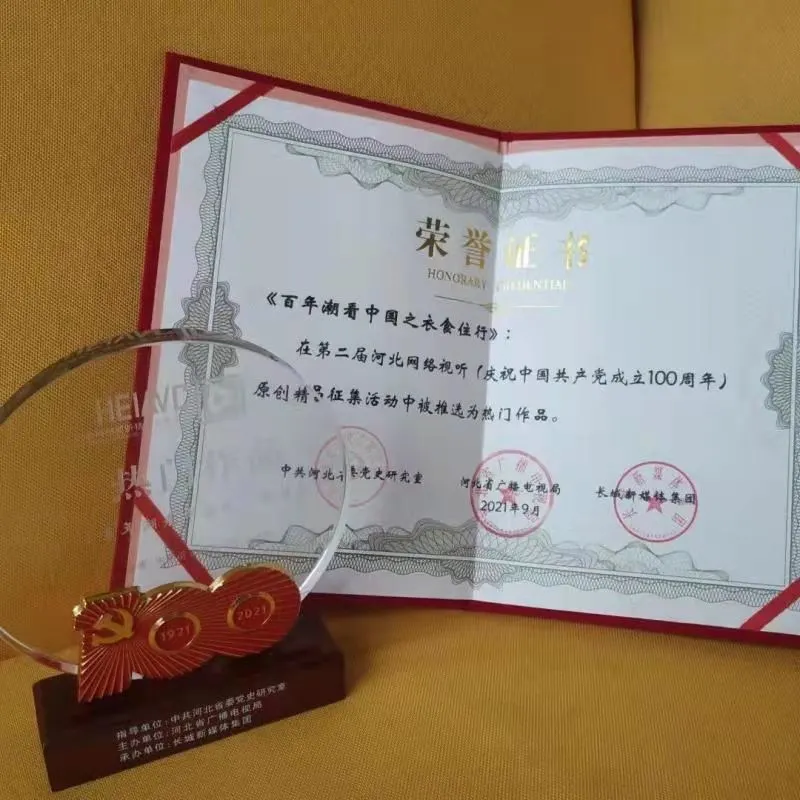 荣誉证书
HONORARY CREDENTIAL
《百年潮看中国之衣食住行》：
在第二届河北网络视听（庆祝中国共产党成立100周年）
原创精品征集活动中被推选为热门作品。
中共河北省委党史研究室
河北省广播电视局
2021年9月
长城新媒体集团
热门作品
1921
2021
指导单位:中共河北省委党史研究室
主办单位:河北省广播电视局
承办单位:长城新媒体集团